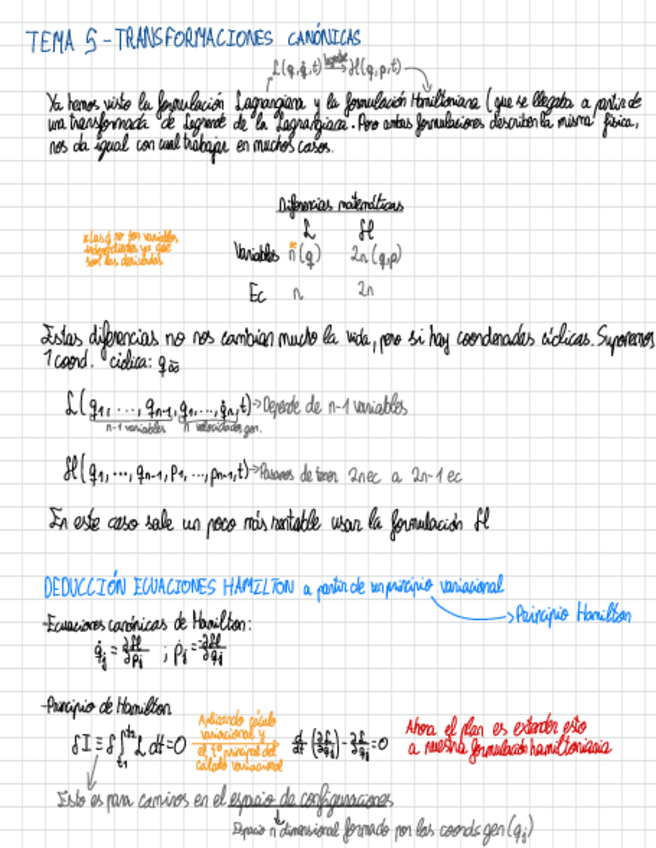 TEMA 5 - TRANSFORMACIONES CANÓNICAS
L(q,q̇,t) → H(q,p,t)
Ya hemos visto la formulación Lagrangiana y la formulación Hamiltoniana (que se llegaba a partir de
una transformada de Legendre de la Lagrangiana. Pero ambas formulaciones describen la misma física,
nos da igual con cual trabajar en muchos casos.
Diferencias matemáticas
L H
*Las q̇ no son variables
independientes ya que
son las derivadas
Variables n*(q) 2n(q,p)
Ec n 2n
Estas diferencias no nos cambian mucho la vida, pero si hay coordenadas cíclicas. Suponemos
1 coord. cíclica:
L(q1, ..., qn-1, q̇1, ..., q̇n, t) → Depende de n-1 variables
n-1 variables n velocidades gen.
H(q1, ..., qn-1, p1, ..., pn-1, t) → Pasamos de tener 2n ec a 2n-1 ec
En este caso sale un poco más rentable usar la formulación H
DEDUCCIÓN ECUACIONES HAMILTON a partir de un principio variacional
→ Principio Hamilton
-Ecuaciones canónicas de Hamilton:
q̇j = ∂H/∂pj ; ṗj = -∂H/∂qj
-Principio de Hamilton
δI ≡ δ∫t1^t2 L dt = 0
Aplicando cálculo
variacional y
el
cálculo variacional
d/dt (∂L/∂q̇j) - ∂L/∂qj = 0
Ahora el plan es extender esto
a nuestra formulación hamiltoniana
Esto es para caminos en el espacio de configuraciones
Espacio n dimensional formado por las coords gen (qj)